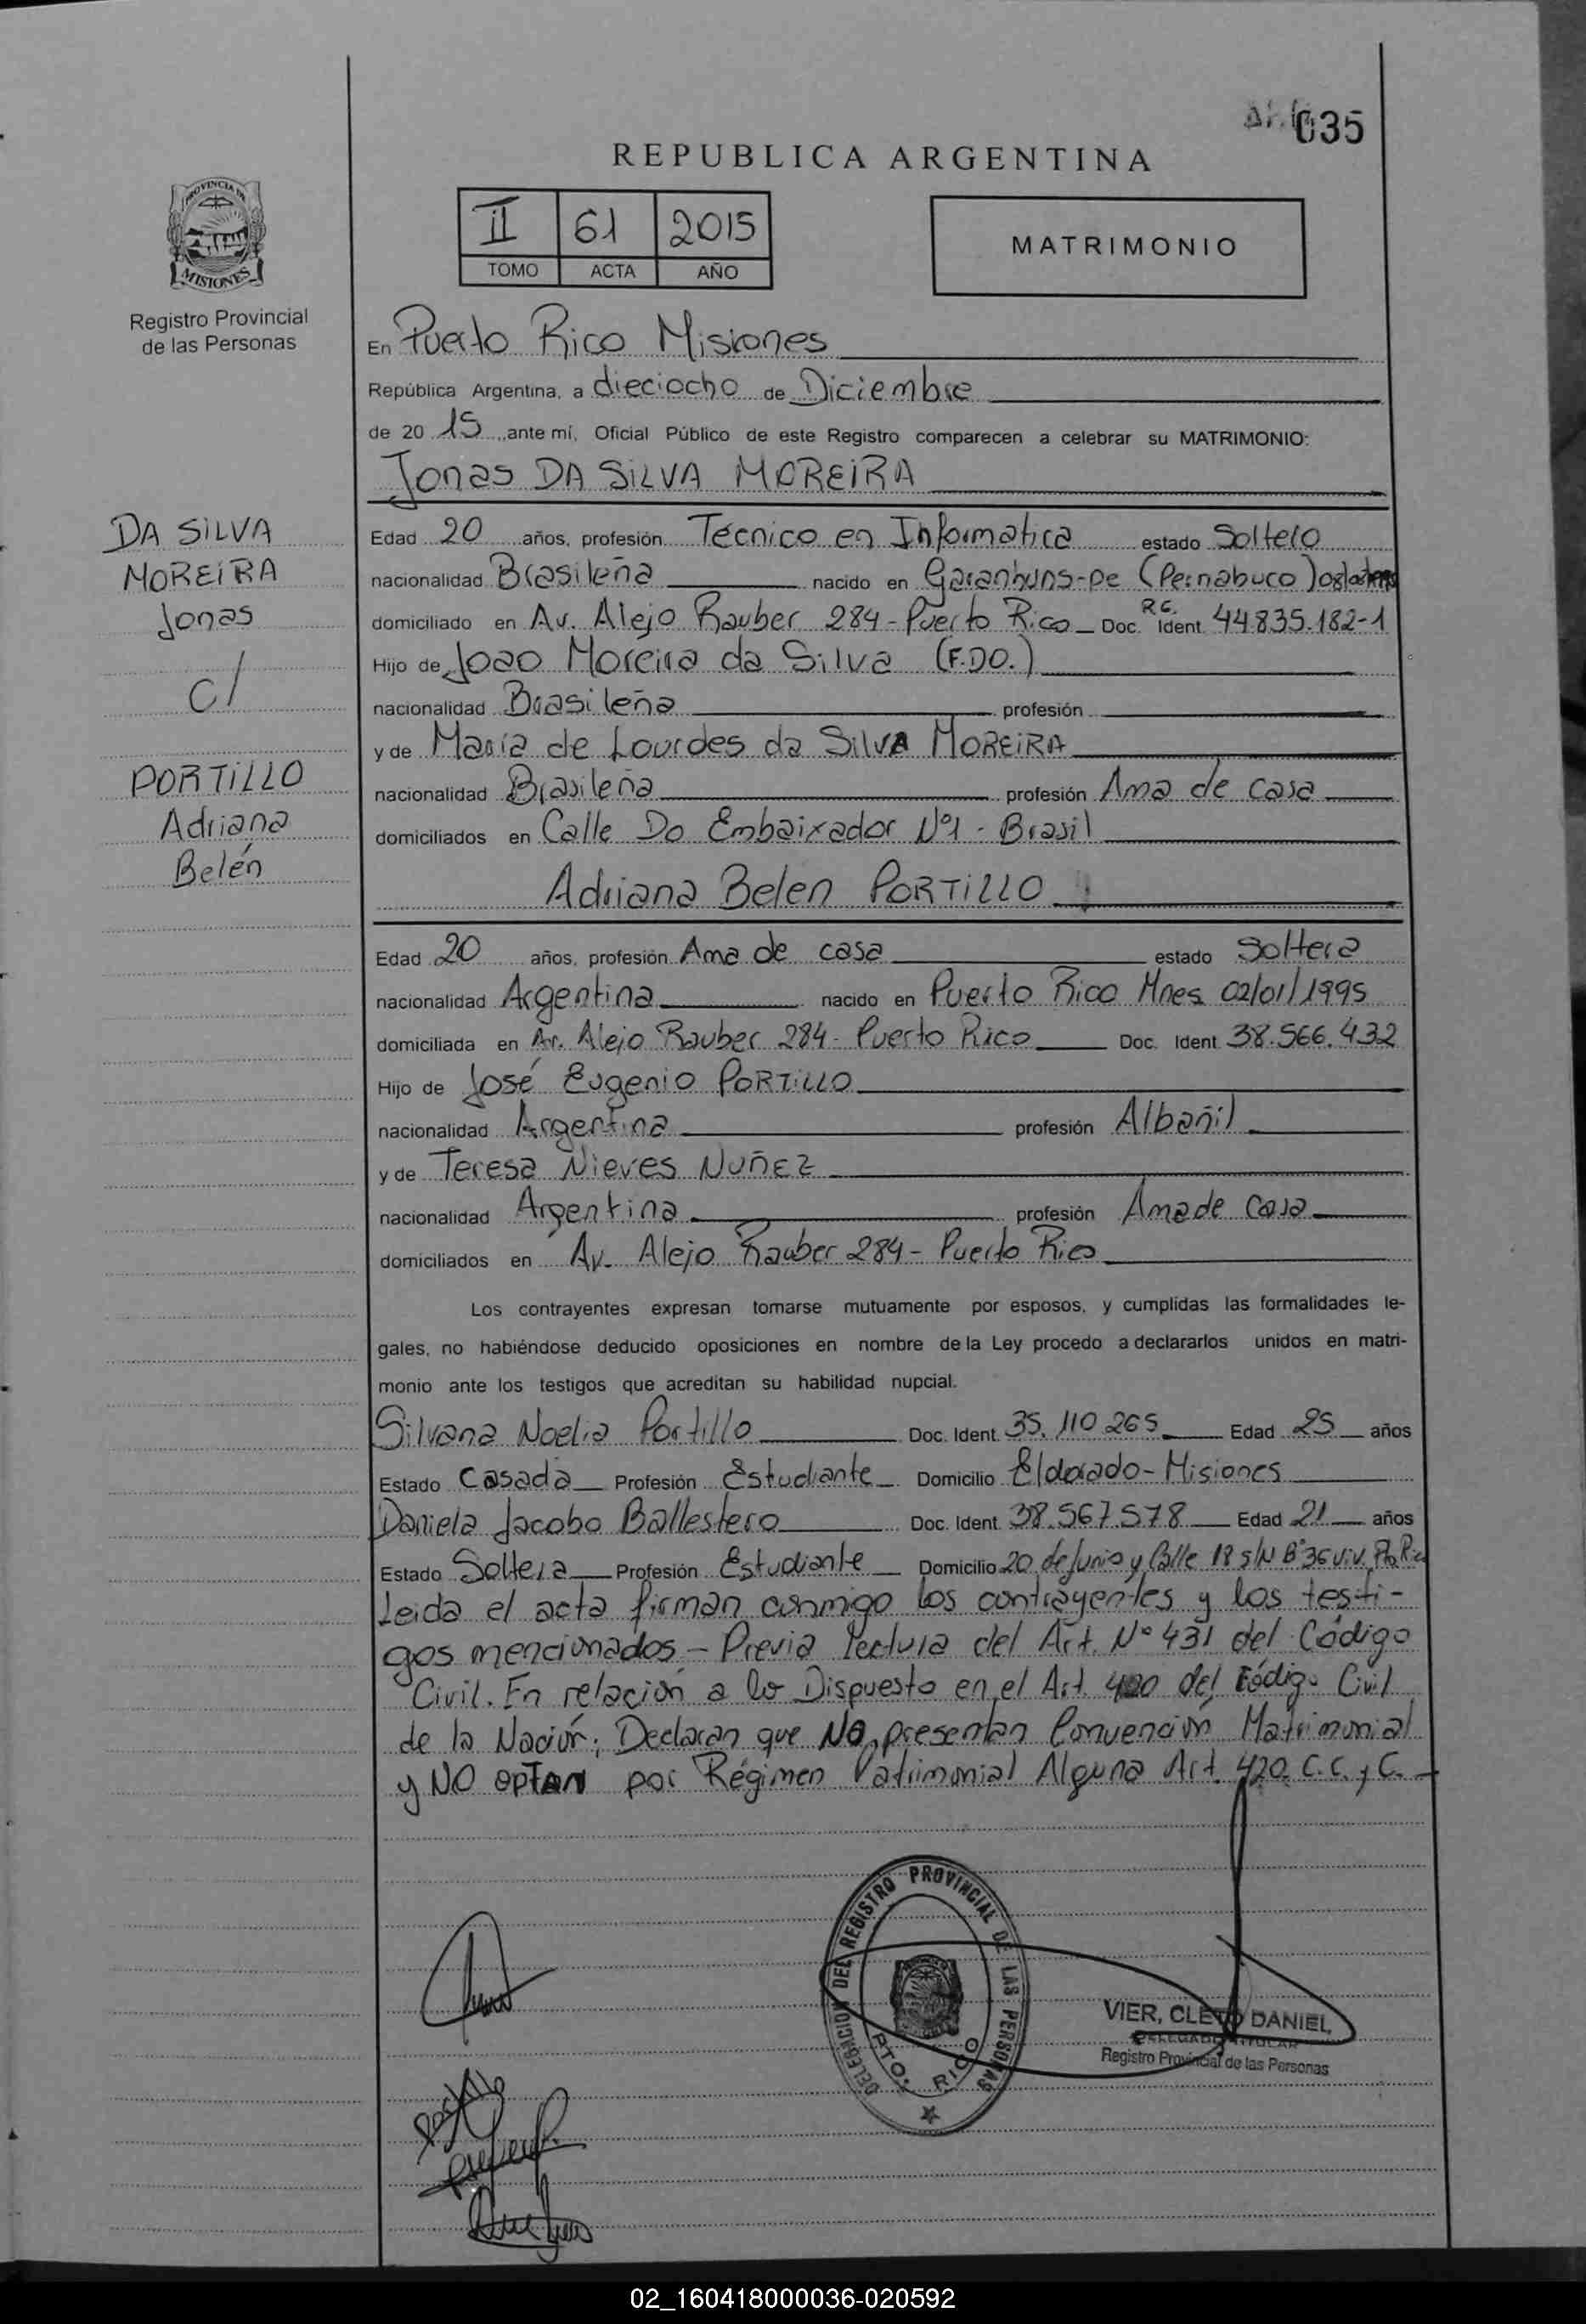 035
REPUBLICA ARGENTINA
II 61 2015
TOMO ACTA AÑO
MATRIMONIO
PROVINCIA DE
MISIONES
Registro Provincial
de las Personas
En Puerto Rico Misiones
República Argentina, a dieciocho de Diciembre
de 20 15, ante mí, Oficial Público de este Registro comparecen a celebrar su MATRIMONIO:
Jonas DA SILVA MOREIRA
DA SILVA
MOREIRA
Jonas
c/
PORTILLO
Adriana
Belén
Edad 20 años, profesión Técnico en Informatica estado Soltero
nacionalidad Brasileña nacido en Garanhuns-pe (Pernabuco)
domiciliado en Av. Alejo Rauber 284 - Puerto Rico Doc. R.G. Ident. 44.835.182-1
Hijo de Joao Moreira da Silva (F.DO.)
nacionalidad Brasileña profesión
y de Maria de Lourdes da SILVA MOREIRA
nacionalidad Brasileña profesión Ama de casa
domiciliados en Calle Do Embaixador Nº1 - Brasil
Adriana Belen PORTILLO
Edad 20 años, profesión Ama de casa estado Soltera
nacionalidad Argentina nacido en Puerto Rico Mnes 02/01/1995
domiciliada en Av. Alejo Rauber 284 - Puerto Rico Doc. Ident. 38.566.432
Hijo de José Eugenio PORTILLO
nacionalidad Argentina profesión Albañil
y de Teresa Nieves NUÑEZ
nacionalidad Argentina profesión Ama de Casa
domiciliados en Av. Alejo Rauber 284 - Puerto Rico
Los contrayentes expresan tomarse mutuamente por esposos, y cumplidas las formalidades le-
gales, no habiéndose deducido oposiciones en nombre de la Ley procedo a declararlos unidos en matri-
monio ante los testigos que acreditan su habilidad nupcial.
Silvana Noelia Portillo Doc. Ident. 35.110.265 Edad 25 años
Estado Casada Profesión Estudiante Domicilio Eldorado - Misiones
Daniela Jacobo Ballestero Doc. Ident. 38.567.578 Edad 21 años
Estado Soltera Profesión Estudiante Domicilio 20 de Junio y Calle 18 s/N Bº 36 viv. Pto. Rico
Leida el acta firman conmigo los contrayentes y los testi-
gos mencionados - Previa lectura del Art. Nº 431 del Código
Civil. En relación a lo Dispuesto en el Art. 420 del Código Civil
de la Nación; Declaran que No presentan Convención Matrimonial
y NO optan por Régimen Patrimonial Alguno Art. 420 C.C. y C.
DELEGACION DEL REGISTRO PROVINCIAL DE LAS PERSONAS
PTO. RICO
VIER, CLETO DANIEL
DELEGADO TITULAR
Registro Provincial de las Personas
Portillo
02_160418000036-020592